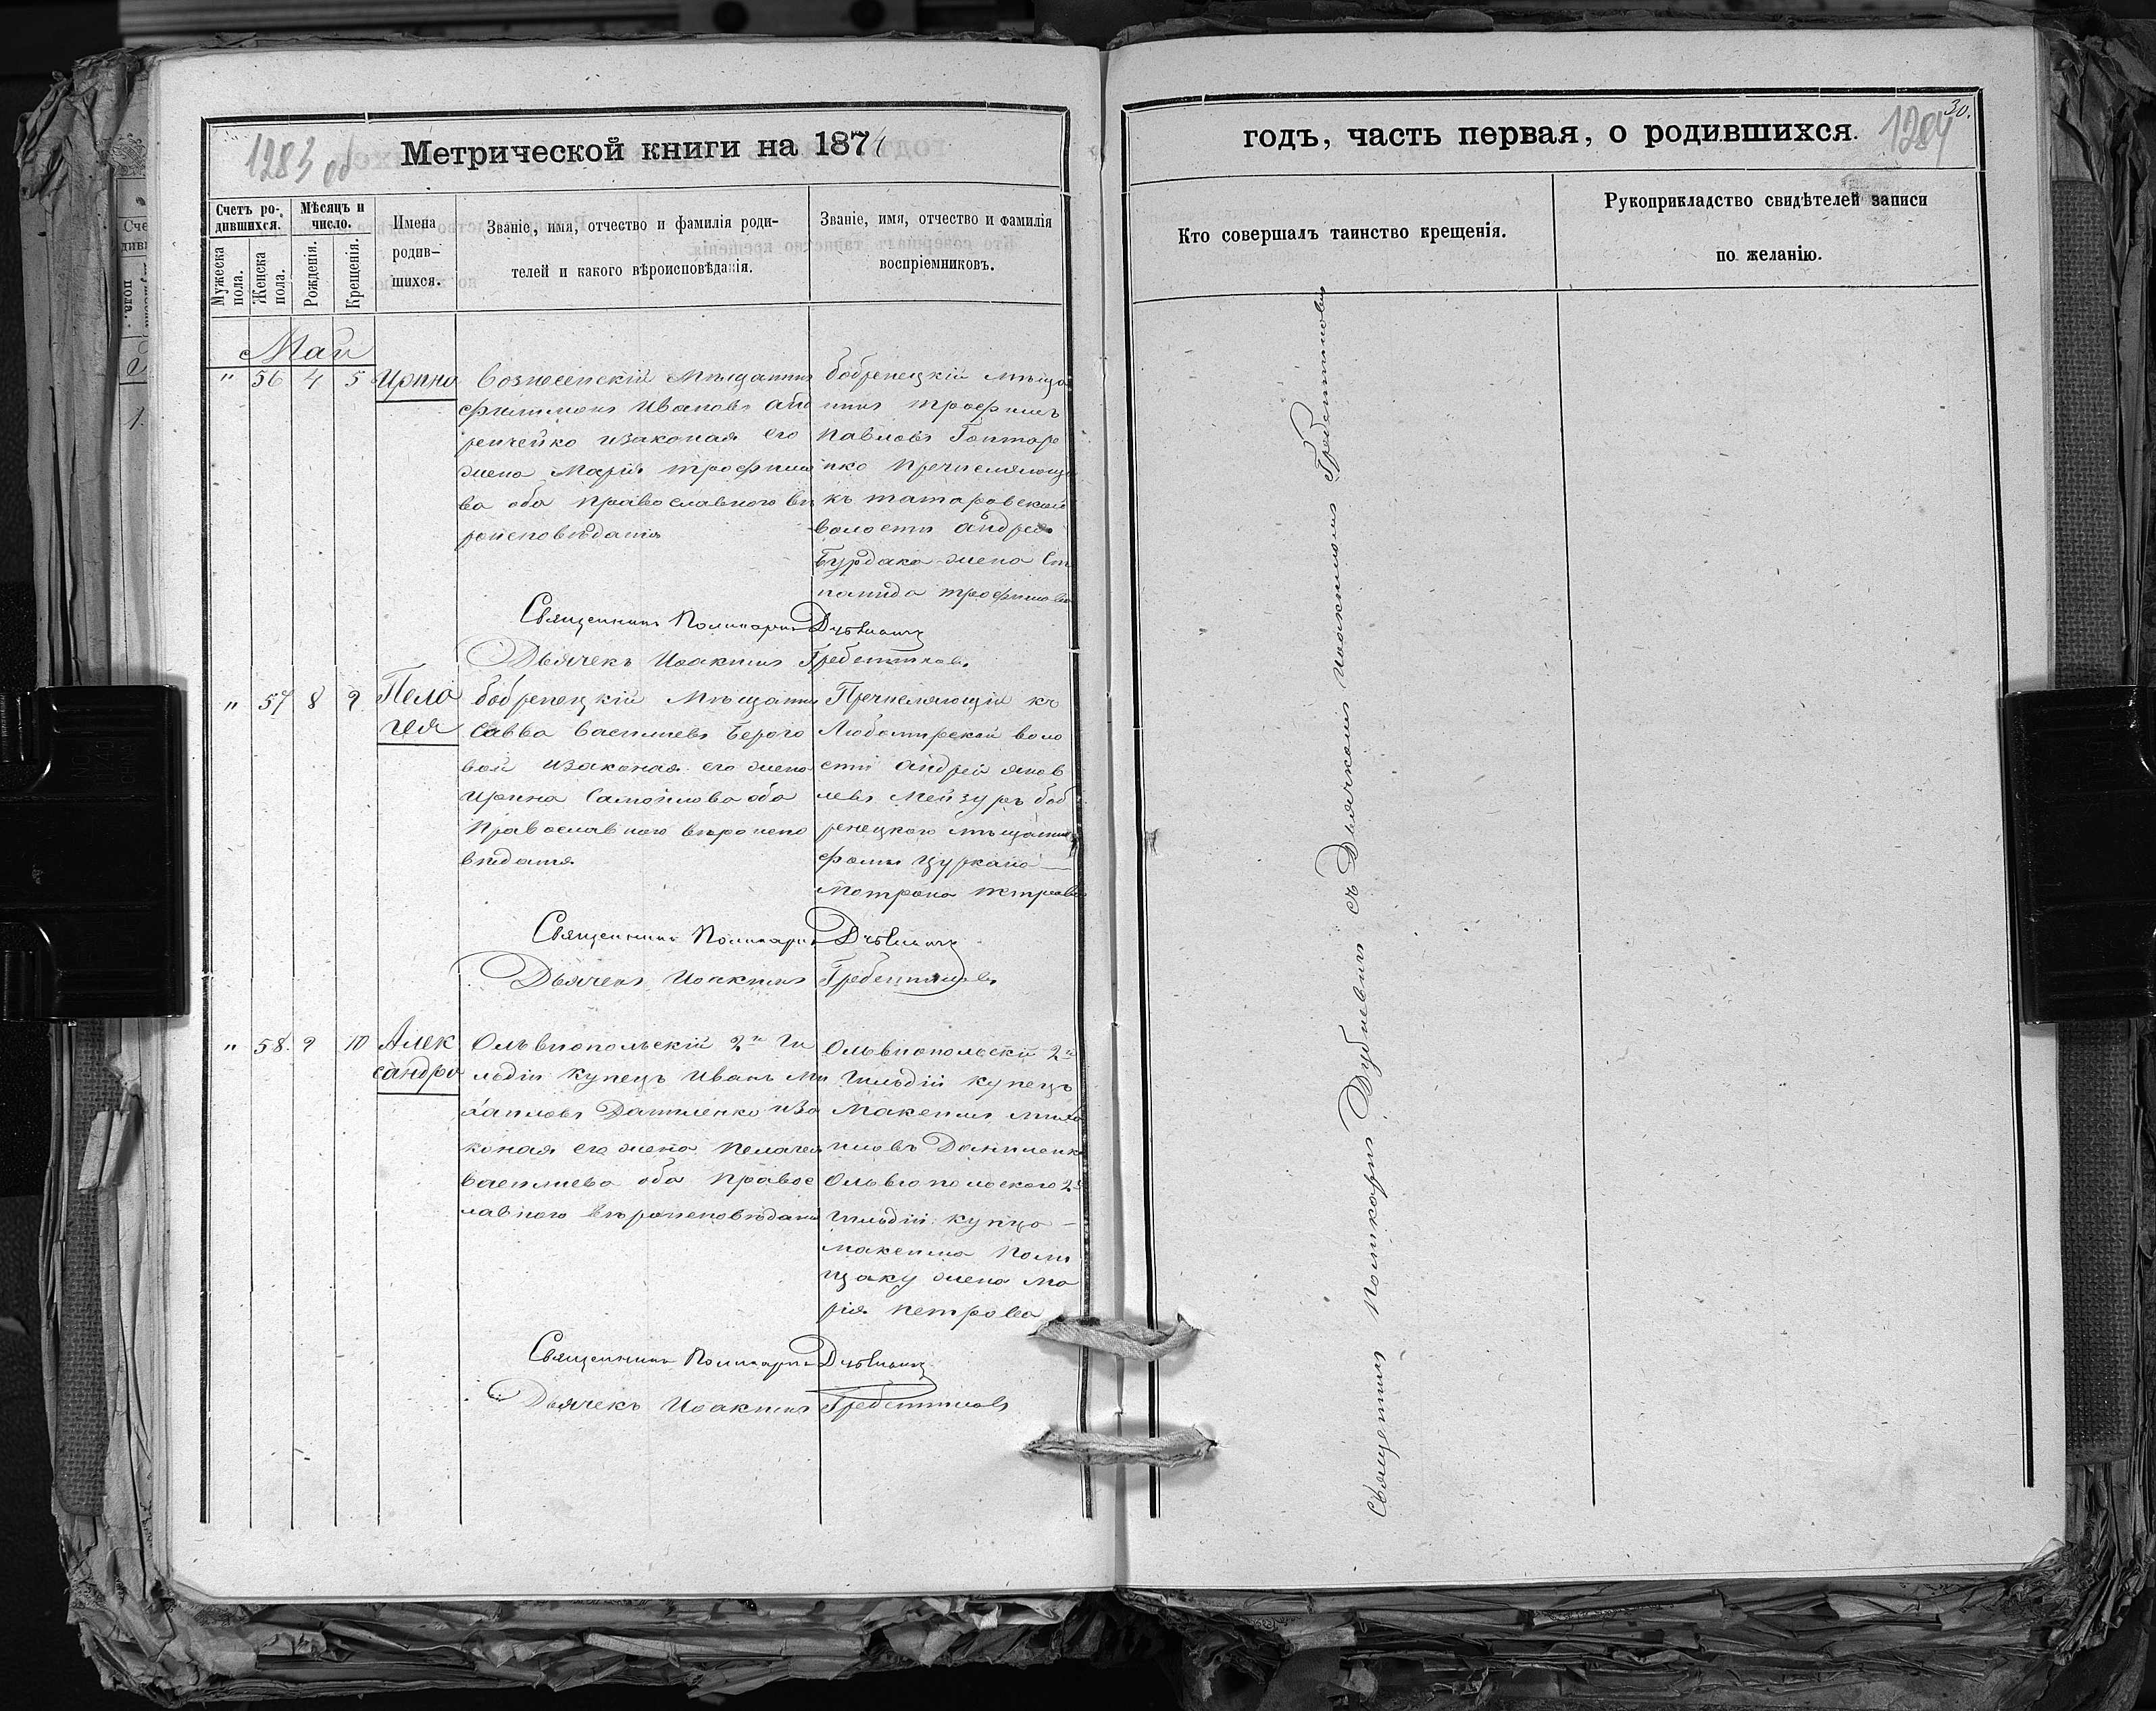 1283 об
Метрической книги на 1871
Счетъ ро-
дившихся.
Мужеска
пола.
Женска
пола.
Мѣсяцъ и
число.
Рожденія.
Крещенія.
Имена
родив-
шихся.
Званіе, имя, отчество и фамилія роди-
телей и какого вѣроисповѣданія.
Званіе, имя, отчество и фамилія
воспріемниковъ.
Май
" 56 4 5 Ирина
Вознесенскій Мѣщанинъ
Филимонъ Ивановъ
изаконая его
жена Марія Трофимо
ва оба православного вѣ
роисповѣданія
бобренецкій мѣща
нинъ Трофимъ
Павловъ Гонтаре
нко Пречисляющ
къ татаровской
волости андрея
Бурдака жена Сте
панида трофимова
Священникъ Поликарпъ
Дьячекъ Иоакимъ Гребенниковъ
" 57 8 9 Пела
гея
бобренецкій Мѣщанинъ
Савва Васильевъ Берего
вой изаконая его жена
Ирина Самойлова оба
Православного вѣроиспо
вѣданія
Пречисляющій къ
Любомирской воло
сти андрей яков
левъ Мейзуръ боб
ренецкого мѣщанина
фомы Цуркана
Мотрона
Священникъ Поликарпъ
Дьячекъ Иоакимъ Гребенниковъ
" 58. 9 10 Алек
сандра
Ольвиопольскій 2й Ги
льдіи Купецъ Иванъ Ми
хаиловъ Даниленко иза
коная его жена Пелагея
Васильева оба Правос
лавного вѣроисповѣданія
Ольвиопольскій 2й
Гильдіи купецъ
Максимъ Миха
иловъ Даниленко
Ольвіопольского 2й
Гильдіи купца
максима Поли
щаку жена Ма
рія Петрова
Священникъ Поликарпъ
Дьячекъ Иоакимъ Гребенниковъ
30.
1284
годъ, часть первая, о родившихся.
Кто совершалъ таинство крещенія.
Рукоприкладство свидѣтелей записи
по желанію.
Священникъ Поликарпъ Дубневичъ съ Дьячкомъ Иоакимомъ Гребенниковымъ